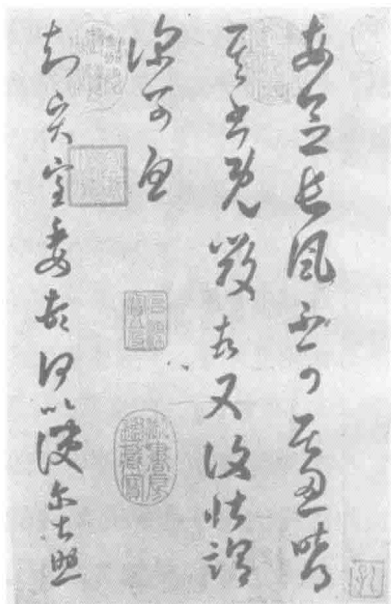 每念長風不可居忍昨
其書既毀頓又復壯謂
深可憂
知賢室委頓何以使爾甚